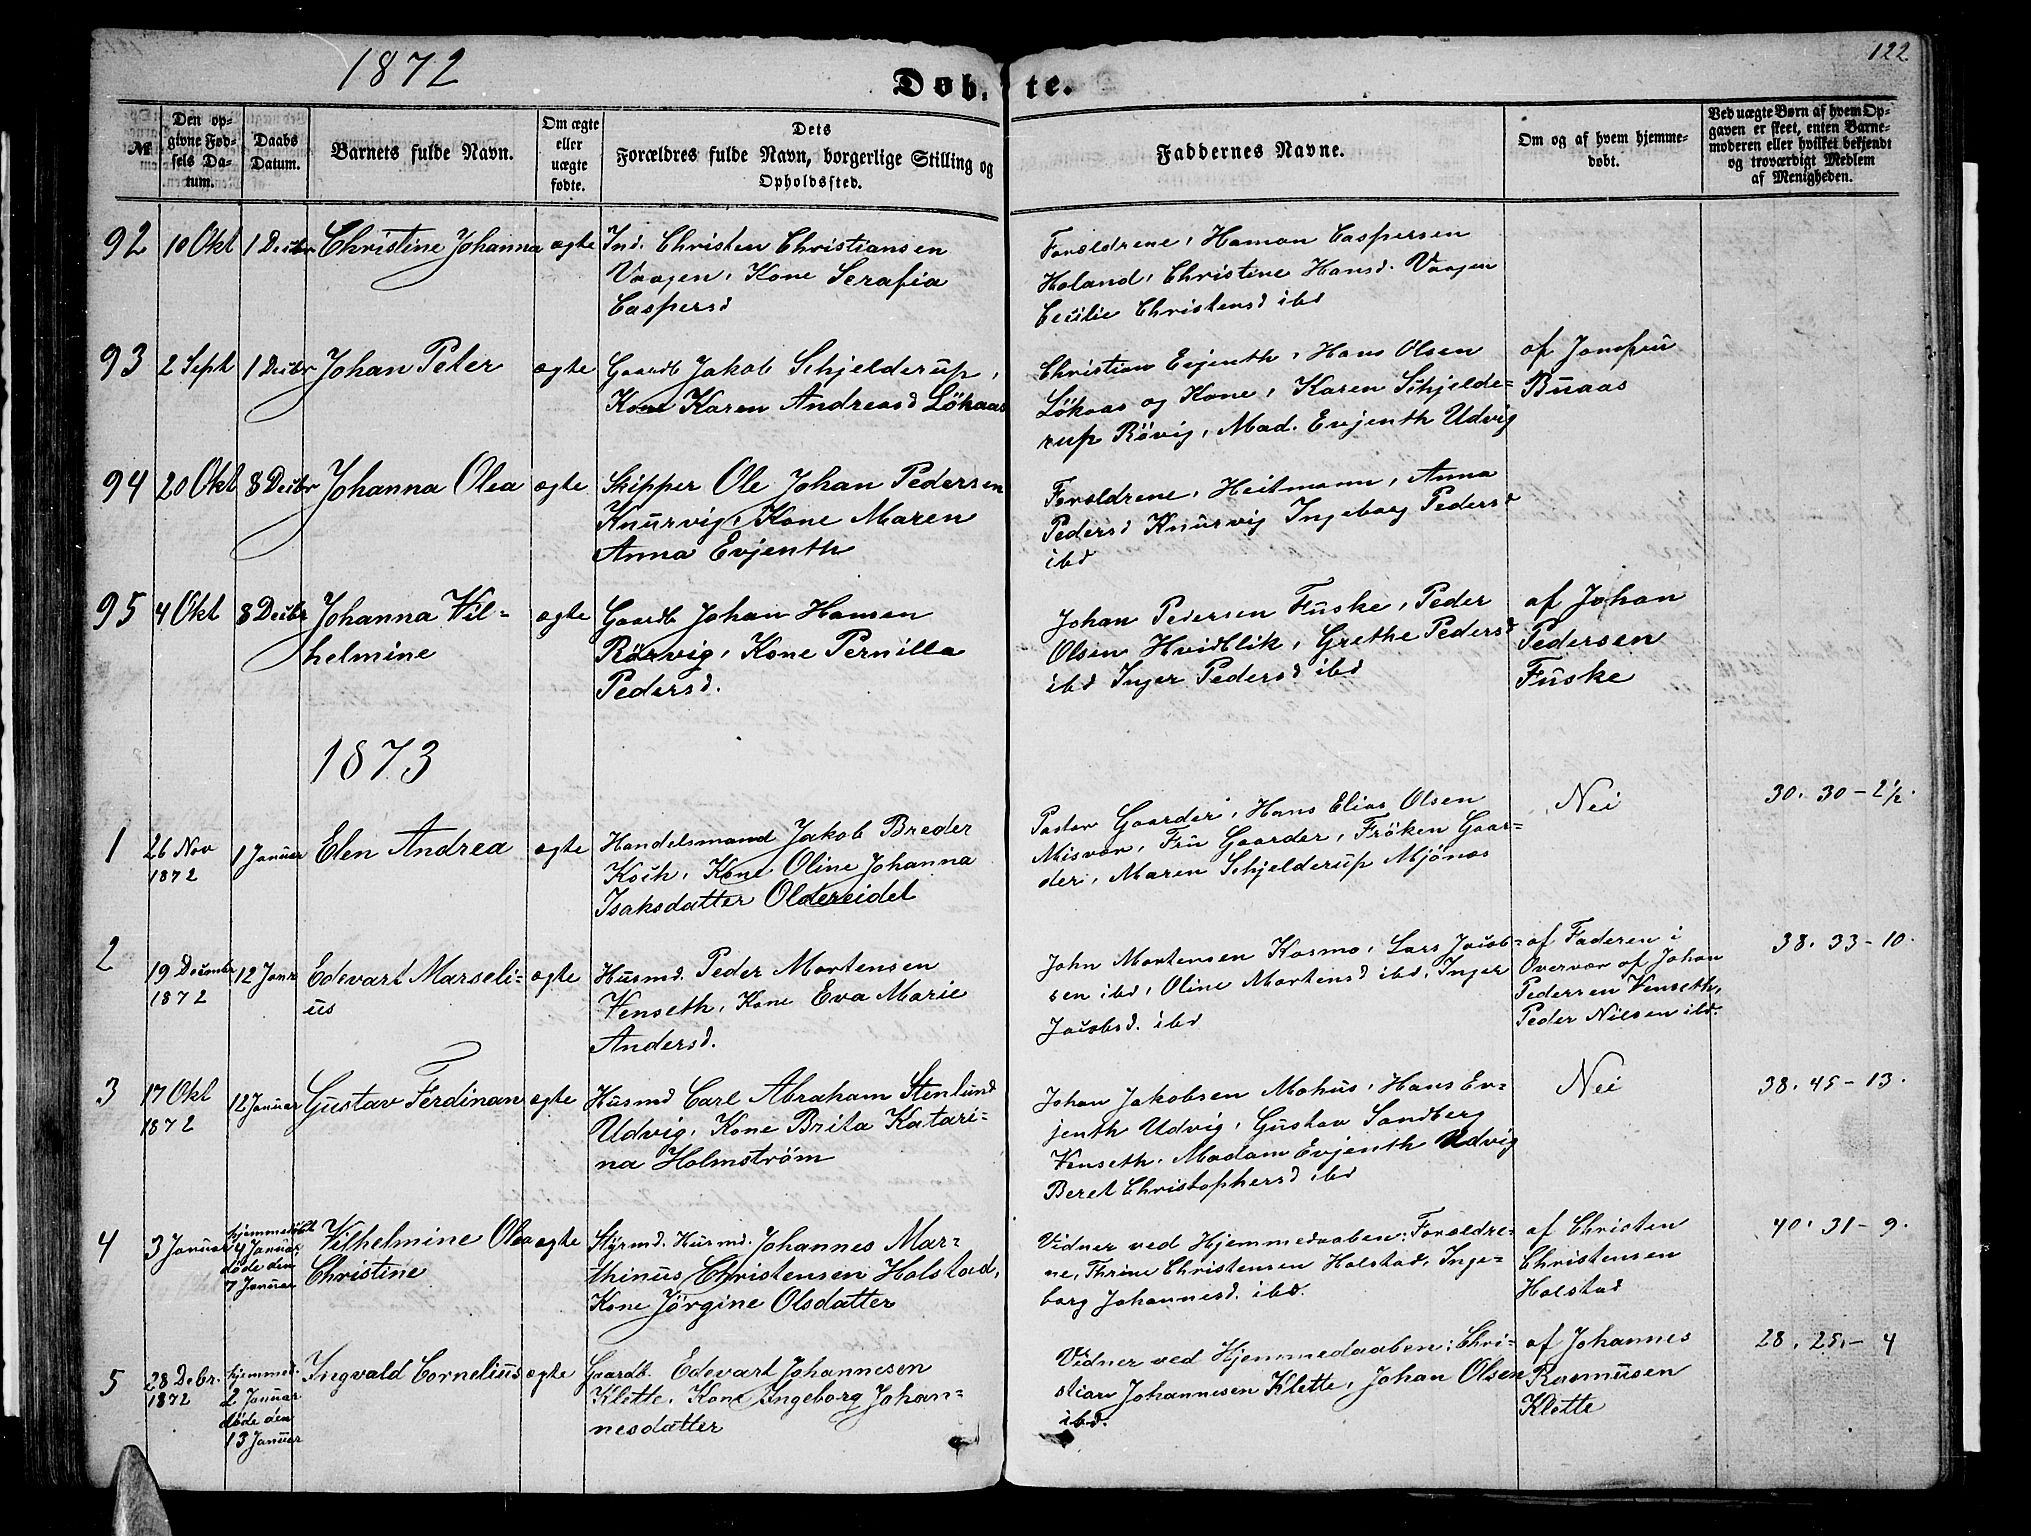 1872
Døb-
te.
122
№
Den op-
givne Fød-
sels Da-
tum.
Daabs
Datum.
Barnets fulde Navn.
Om ægte
eller
uægte
fødte.
Dets
Forældres fulde Navn, borgerlige Stilling og
Opholdssted.
Faddernes Navne.
Om og af hvem hjemme-
døbt.
Ved uægte Børn af hvem Op-
gaven er skeet, enten Barne-
moderen eller hvilket bekjendt
og troværdigt Medlem
af Menigheden.
92 10 Okt 1 Decbr Christine Johanna ægte Ind. Christen Christiansen
Vaagen, Kone Serafia
Caspersd
Forældrene, Haman Caspersen
Holand, Christine Hansd. Vaagen
Cecilie Christensd ibd
93 2 Sept 1 Decbr Johan Peter ægte Gaardb Jakob Schjelderup,
Kone Karen Andreasd Lökaas
Christian Evjenth, Hans Olsen
Lökaas og Kone, Karen Schjelde-
rup Rövig, Mad. Evjenth Udvig
af Jomfru
Buaas
94 20 Okt 8 Decbr Johanna Olea ægte Skipper Ole Johan Pedersen
Knurvig, Kone Maren
Anna Evjenth
Forældrene, Heitmann, Anna
Pedersd Knurvig Ingeborg Pedersd
ibd
95 4 Okt 8 Decbr Johanna Vil-
helmine
ægte Gaardb Johan Hansen
Rörvig, Kone Pernilla
Pedersd.
Johan Pedersen Fuske, Peder
Olsen Hvidblik, Grethe Pedersd
ibd Inger Pedersd ibd
af Johan
Pedersen
Fuske
1873
1 26 Nov
1872
1 Januar Elen Andrea ægte Handelsmand Jakob Breder
Koch, Kone Oline Johanna
Isaksdatter Oldereidet
Pastor Gaarder, Hans Elias Olsen
Misvær, Fru Gaarder, Fröken Gaar-
der, Maren Schjelderup Mjönæs
Nei
30. 30 - 2 1/2.
2 19 Decembr
1872
12 Janr Edevart Marseli-
us
ægte Husmd. Peder Mortensen
Venseth, Kone Eva Marie
Andersd.
John Mortensen Kosmo, Lars Jacob-
sen ibd, Oline Mortensd ibd, Inger
Jacobsd. ibd
af Faderen i
Overvær af Johan
Pedersen Venseth,
Peder Nilsen ibd.
38. 33 - 10.
3 17 Okt
1872
12 Januar Gustav Ferdinan ægte Husmd Carl Abraham Stenlund
Udvig, Kone Brita Katari-
na Holmström
Johan Jakobsen Mohus, Hans Ev-
jenth Udvig, Gustav Sandberg
Venseth, Madam Evjenth Udvig
Beret Christophersd ibd
Nei
38. 45 - 13.
4 3 Januar hjemmedöbt
4 Januar
döde den
7 Januar
Vilhelmine Olea
Christine
ægte Styrmd. Husmd. Johannes Mar-
thinus Christensen Holstad,
Kone Jörgine Olsdatter
Vidner ved Hjemmedaaben: Forældre-
ne, Thrine Christensen Holstad, Inge-
borg Johannesd. ibd.
af Christen
Christensen
Holstad
40. 31 - 9.
5 28 Debr.
1872
hjemmed.
2 Januar
döde den
13 Januar
Ingvald Cornelius ægte Gaardb. Edevart Johannesen
Klette, Kone Ingeborg Johan-
nesdatter
Vidner ved Hjemmedaaben: Chri-
stian Johannesen Klette, Johan Olsen
ibd.
af Johannes
Rasmusen
Klette
28. 25. - 4